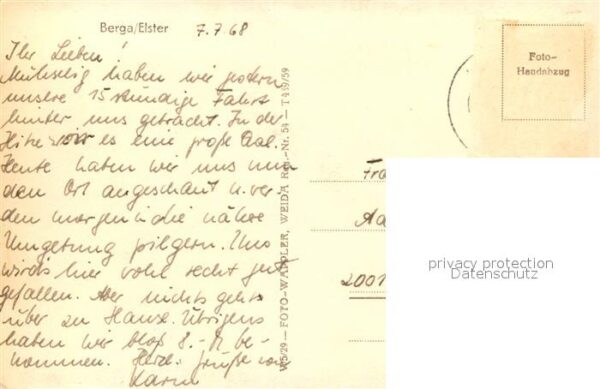 Berga/Elster 7.7.68
Ihr Lieben!
Mühselig haben wir gestern
unsere 15stündige Fahrt
hinter uns gebracht. In der
Hitze war es eine große Qual.
Heute haben wir uns nun
den Ort angeschaut u. wer-
den morgen in die nähere
Umgebung pilgern. Uns
wird's hier wohl recht gut
gefallen. Aber nichts geht's
über zu Hause. Übrigens
haben wir bloß 8.- M be-
kommen. Herzl. Grüße von
Karin
V 5/29 — FOTO-WAPPLER, WEIDA Reg.-Nr. 54 — T 449/59
Foto-
Handabzug
Fra
2001
privacy protection
Datenschutz